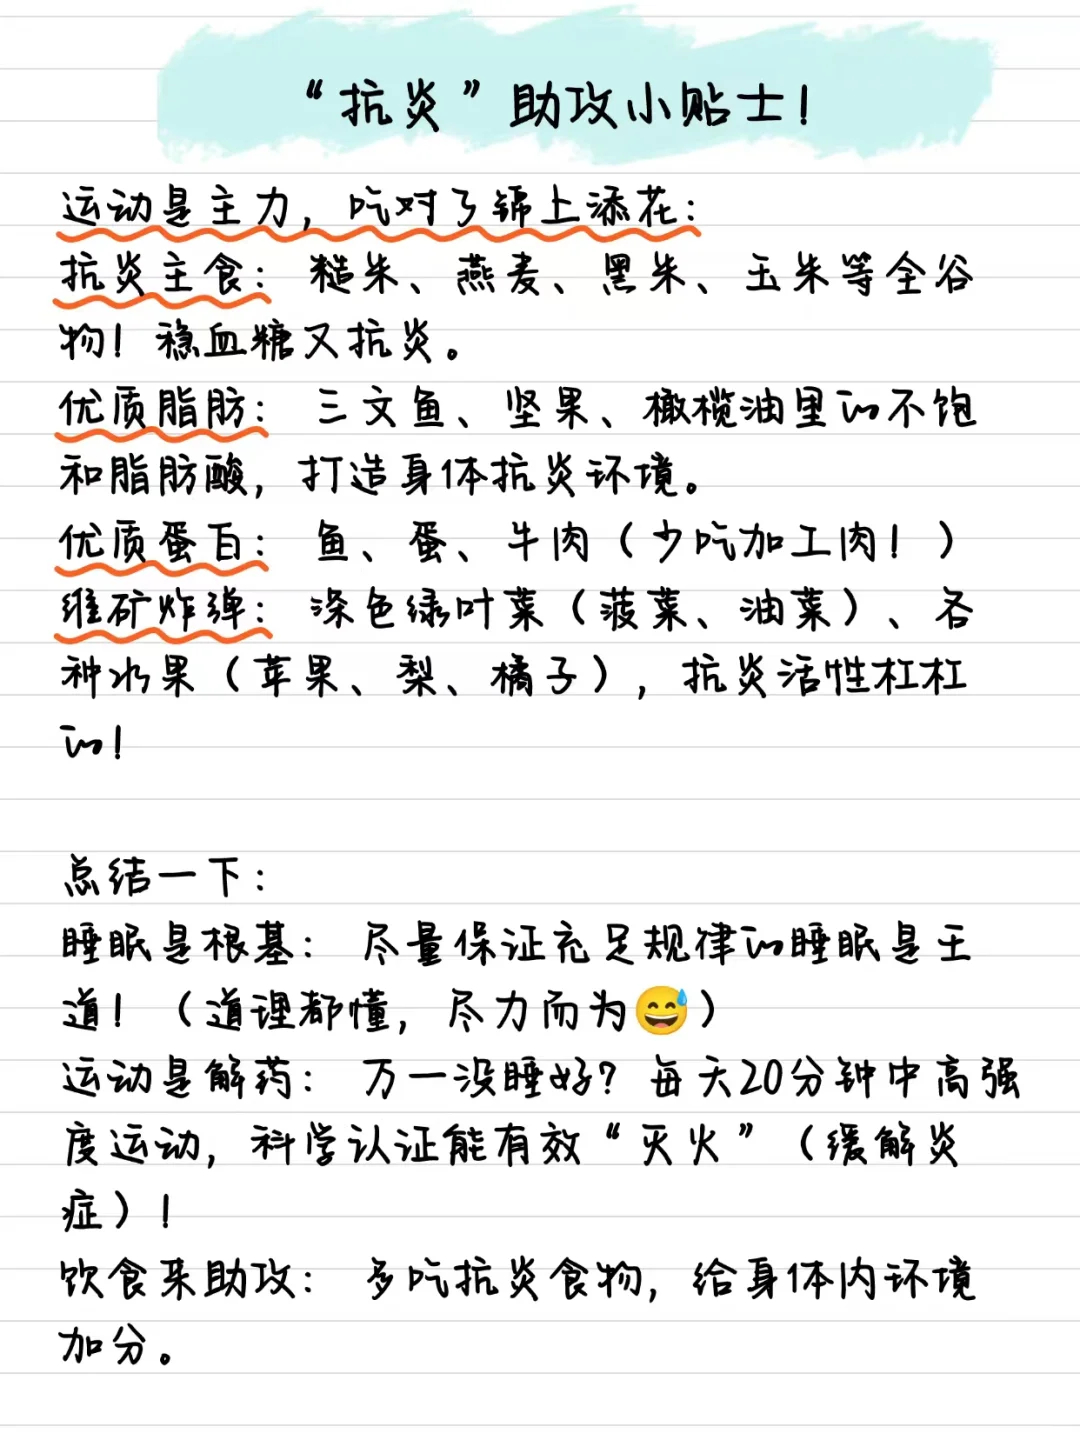 “抗炎”助攻小贴士!
运动是主力，吃对了锦上添花:
抗炎主食: 糙米、燕麦、黑米、玉米等全谷
物! 稳血糖又抗炎。
优质脂肪: 三文鱼、坚果、橄榄油里的不饱
和脂肪酸，打造身体抗炎环境。
优质蛋白: 鱼、蛋、牛肉（少吃加工肉!）
维矿炸弹: 深色绿叶菜（菠菜、油菜）、各
种水果（苹果、梨、橘子），抗炎活性杠杠
的!
总结一下:
睡眠是根基: 尽量保证充足规律的睡眠是王
道! （道理都懂，尽力而为😅）
运动是解药: 万一没睡好? 每天20分钟中高强
度运动，科学认证能有效“灭火”（缓解炎
症）!
饮食来助攻: 多吃抗炎食物，给身体内环境
加分。